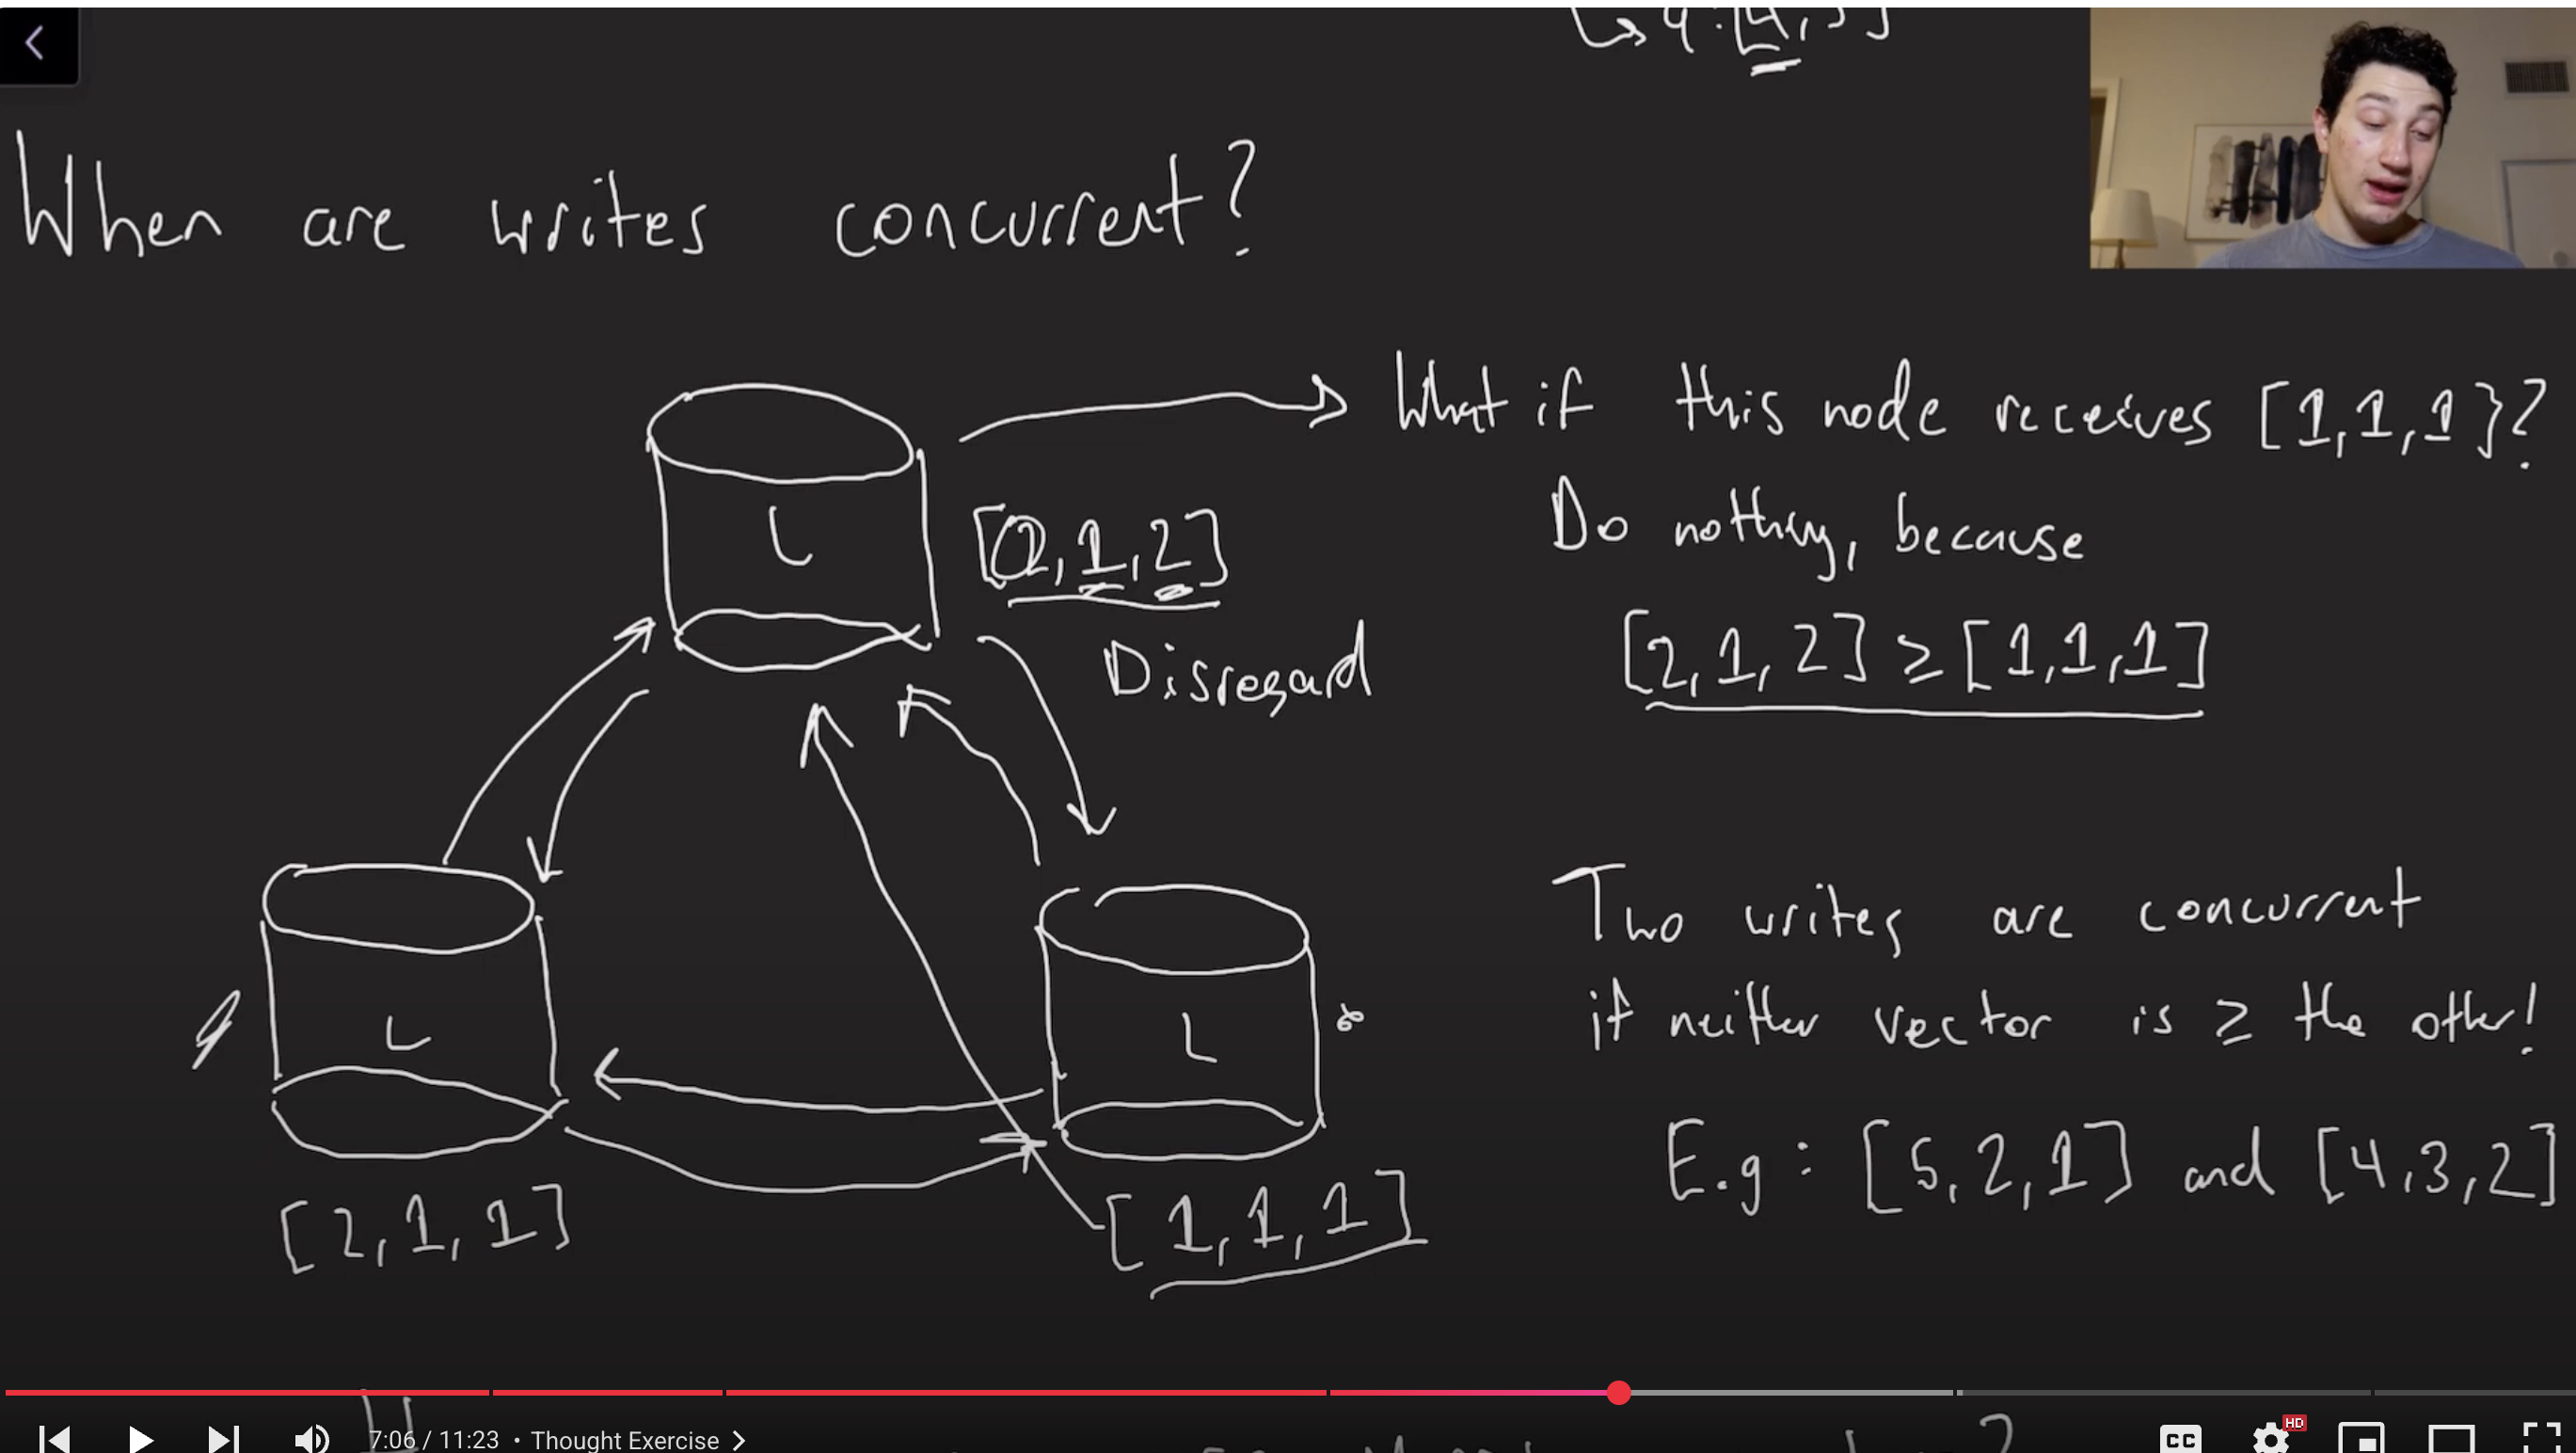 When are writes concurrent?
What if this node receives [1,1,1}?
Do nothing, because
[2,1,2] ≥ [1,1,1]
L
[2,1,2]
Disregard
L
[2,1,1]
L
[1,1,1]
Two writes are concurrent
if neither vector is ≥ the other!
E.g: [5,2,1] and [4,3,2]
7:06 / 11:23 • Thought Exercise
CC
HD